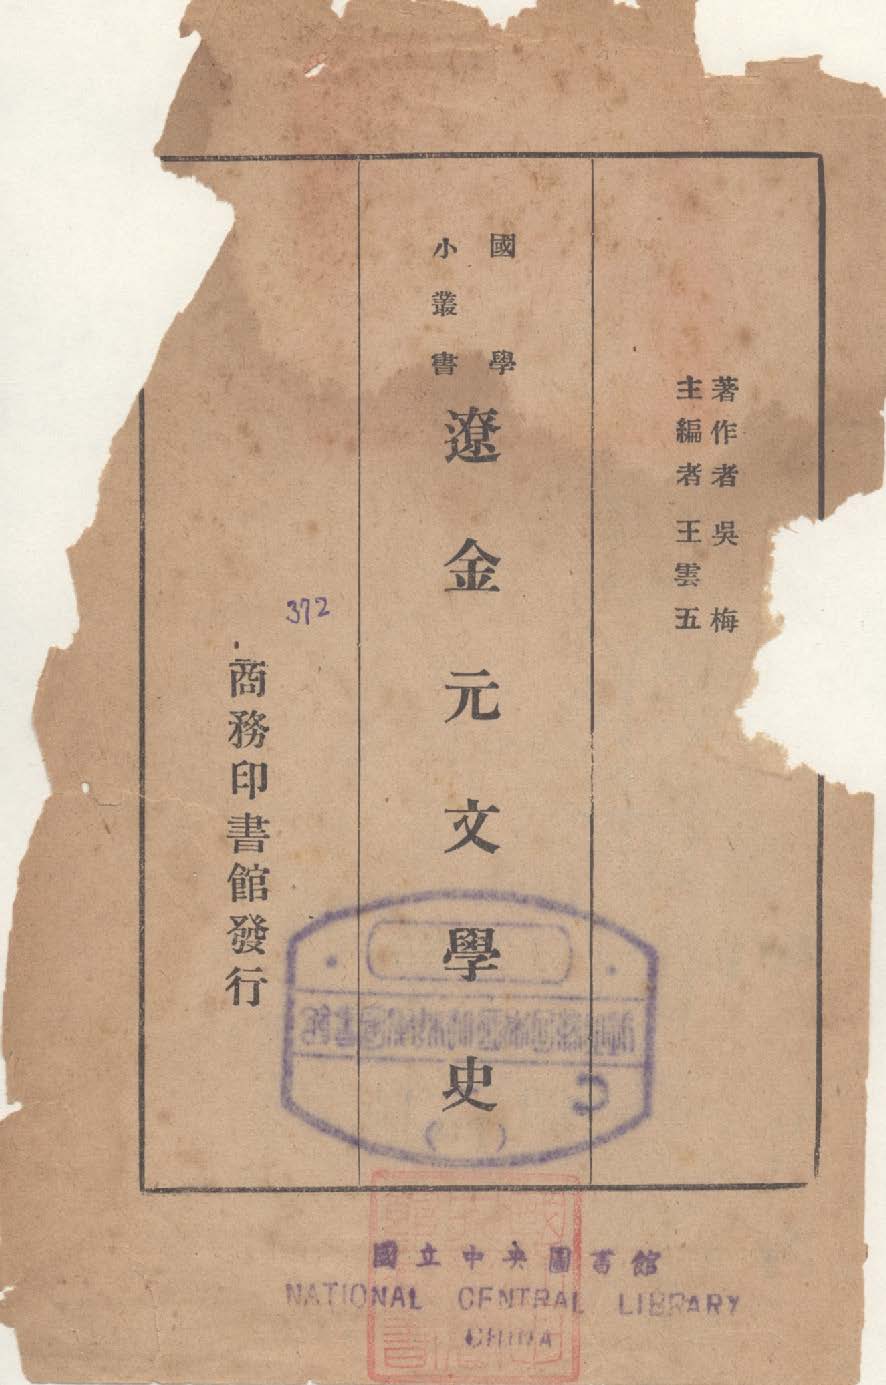 著作者吳梅
主編者王雲五
國學
小叢書
遼金元文學史
372
商務印書館發行
國立中央圖書館
NATIONAL CENTRAL LIBRARY
CHINA
C